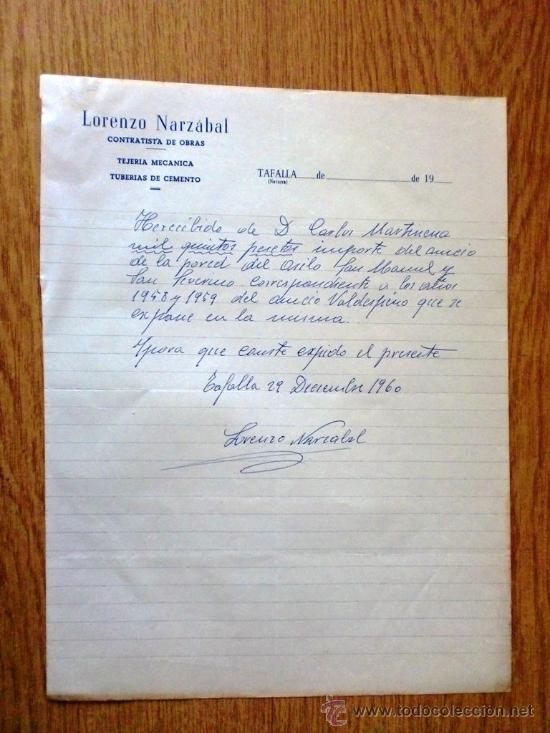 Lorenzo Narzábal
CONTRATISTA DE OBRAS
TEJERIA MECANICA
TUBERIAS DE CEMENTO
TAFALLA de de 19
(Navarra)
He recibido de D Carlos
mil quintos pesetas importe del anucio
de la pared del Asilo San Manuel y
San Severino correspondiente a los años
1958 y 1959 del anucio Valdespino que se
expone en la misma.
Ypara que conste expido el presente
Tafalla 29 Diciembre 1960
Lorenzo Narzabal
www.todocoleccion.net